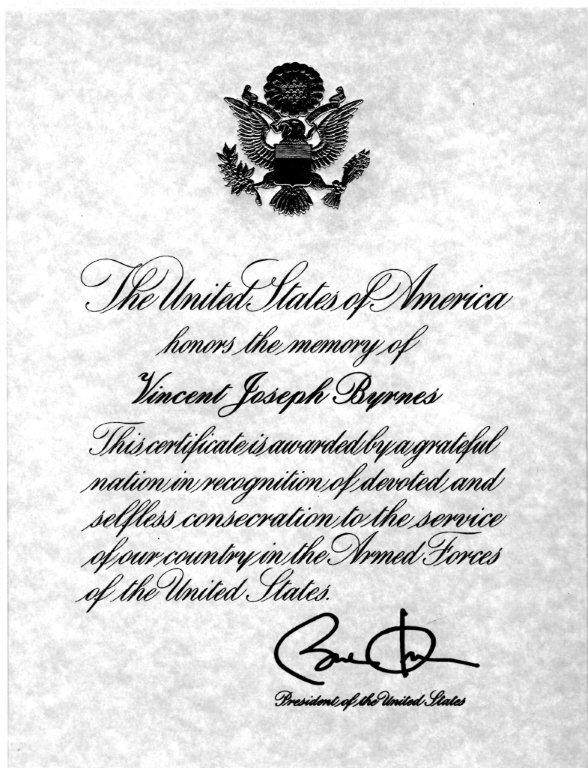 The United States of America
honors the memory of
Vincent Joseph Byrnes
This certificate is awarded by a grateful
nation in recognition of devoted and
selfless consecration to the service
of our country in the Armed Forces
of the United States.
President of the United States